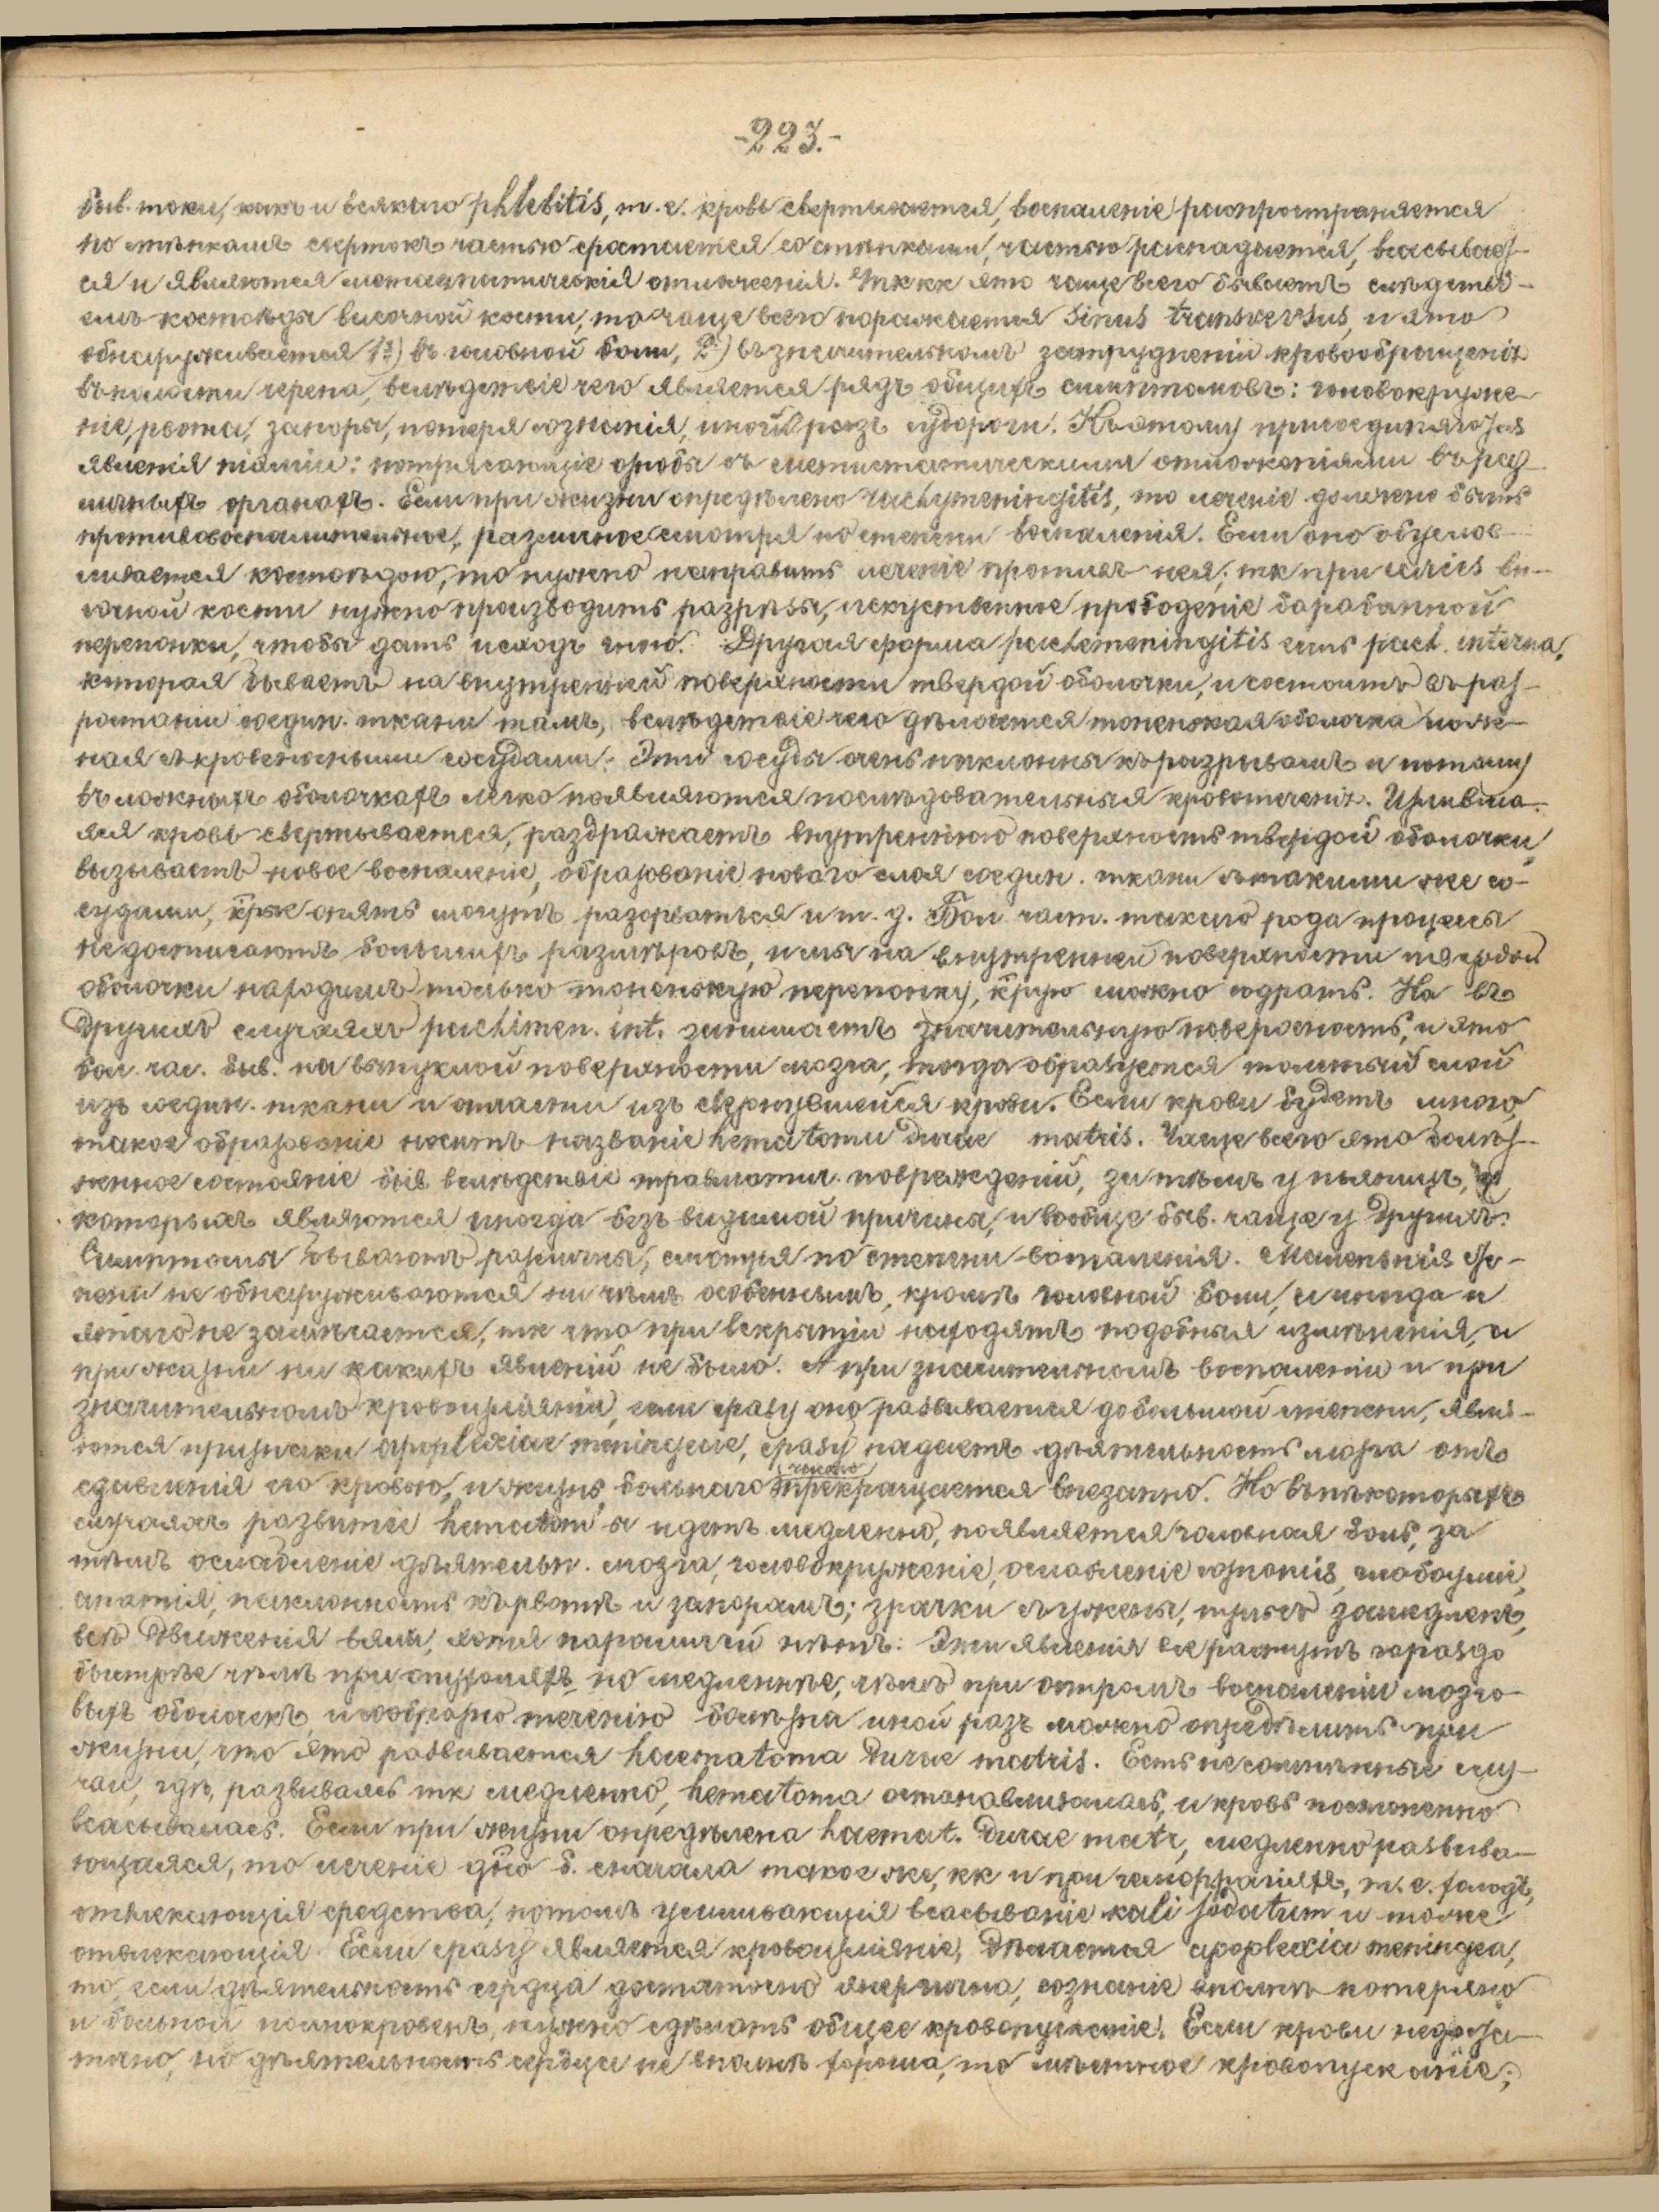 -223.-
быв. токи, какъ и всякаго phlebitis, т. е. кровь свертывается, воспаленіе распространяется
по стѣнкамъ свертокъ частью сростается со стѣнками, частью распадается, всасывает-
ся и являются метастатическія отложенія. Тк кк это чаще всего бываетъ слѣдстві-
емъ костоѣды височной кости, то чаще всего поражается Sinus transversus, и это
обнаруживается 1º) въ головной боли, 2º) въ значительномъ затрудненіи кровообращенія
въ полости черепа, вслѣдствіе чего является рядъ общихъ симптомовъ: головокруже-
ніе, рвота, запоры, потеря сознанія, иной разъ судороги. Къ этому присоединяются
явленія піэміи: потрясающіе ознобы съ метастатическими отложеніями въ раз-
личныхъ органахъ. Если при жизни опредѣлено pachymeningitis, то леченіе должно быть
противовоспалительное, различное смотря по степени воспаленія. Если оно обуслов-
ливается костоѣдою, то нужно направить леченіе противъ нея; тк при caries ви-
сочной кости нужно производить разрѣзы, искуственное прободеніе барабанной
перепонки, чтобы дать исходъ гною. Другая форма pachemeningitis есть pach. interna,
которая бываетъ на внутренней поверхности твердой оболочки, и состоитъ въ раз-
ростаніи соедин. ткани тамъ, вслѣдствіе чего дѣлается тоненькая оболочка
ная съ кровеносными сосудами. Эти сосуды очень наклонны къ разрывамъ и потому
въ ложныхъ оболочкахъ легко появляются послѣдовательныя кровотеченія. Излившa-
яся кровь свертывается, раздражаетъ внутреннюю поверхность твердой оболочки,
вызываетъ новое воспаленіе, образованіе новаго слоя соедин. ткани съ такими же со-
судами, крые опять могутъ разорваться и т. д. Бол. част. такого рода процессы
не достигаютъ большихъ размѣровъ, и мы на внутренней поверхности твердой
оболочки находимъ только тоненькую перепонку, крую можно содрать. Но въ
другихъ случаяхъ pachimen. int. занимаетъ значительную поверхность, и это
бол. час. быв. на выпуклой поверхности мозга, тогда образуется толстый слой
изъ соедин. ткани и отчасти изъ свернувшейся крови. Если крови будетъ много,
такое образованіе носитъ названіе hematomи durae matris. Чаще всего это болѣз-
ненное состояніе быв. вслѣдствіе травматич. поврежденій, затѣмъ у пьяницъ, у
которыхъ являются иногда безъ видимой причины, и вообще быв. чаще у другихъ.
Симптомы бываютъ различны, смотря по степени воспаленія. Маленькія сте-
пени не обнаруживаются ни чѣмъ особеннымъ, кромѣ головной боли, и иногда и
этаго не замѣчается, тк что при вскрытіи находятъ подобныя измѣненія, а
при жизни ни какихъ явленій не было. А при значительномъ воспаленіи и при
значительномъ кровоизліяніи, если сразу оно развивается до большой степени, явля-
ются признаки apoplexiae meningeae, сразу падаетъ дѣятельность мозга отъ
сдавленія его кровью, и жизнь больного прекращается внезапно. Но въ нѣкоторыхъ
случаяхъ развитіе hematom'ы идетъ медленно, появляется головная боль, за
тѣмъ ослабленіе дѣятельн. мозга, головокруженіе, ослабленіе сознанія, слабоуміе,
апатія, наклонность къ рвотѣ и запорамъ; зрачки съужены, пульсъ замедленъ,
всѣ движенія вялы, хотя параличей нѣтъ. Эти явленія все растутъ гораздо
быстрѣе чѣмъ при опухоляхъ, но медленнѣе, чѣмъ при остромъ воспаленіи мозго-
выхъ оболочекъ, и сообразно теченію болѣзни иной разъ можно опредѣлить при
жизни, что это развивается haematoma durae matris. Есть несомнѣнные слу-
чаи, гдѣ, развиваясь тк медленно, hematoma останавливалась, и кровь постепенно
всасывалась. Если при жизни опредѣлена haemat. durae matr, медленно развива-
ющаяся, то леченіе д. б. сначала такое же, кк и при геморрагіяхъ, т. е. холодъ,
отвлекающія средства, потомъ усиливающія всасываніе kali jodatum и тоже
отвлекающія. Если сразу является кровоизліяніе, дѣлается apoplexia meningea,
то, если дѣятельность сердца достаточно энергична, сознаніе вполнѣ потеряно
и больной полнокровенъ, нужно сдѣлать общее кровопусканіе. Если крови недоста-
точно, но дѣятельность сердца не вполнѣ хороша, то мѣстное кровопусканіе;